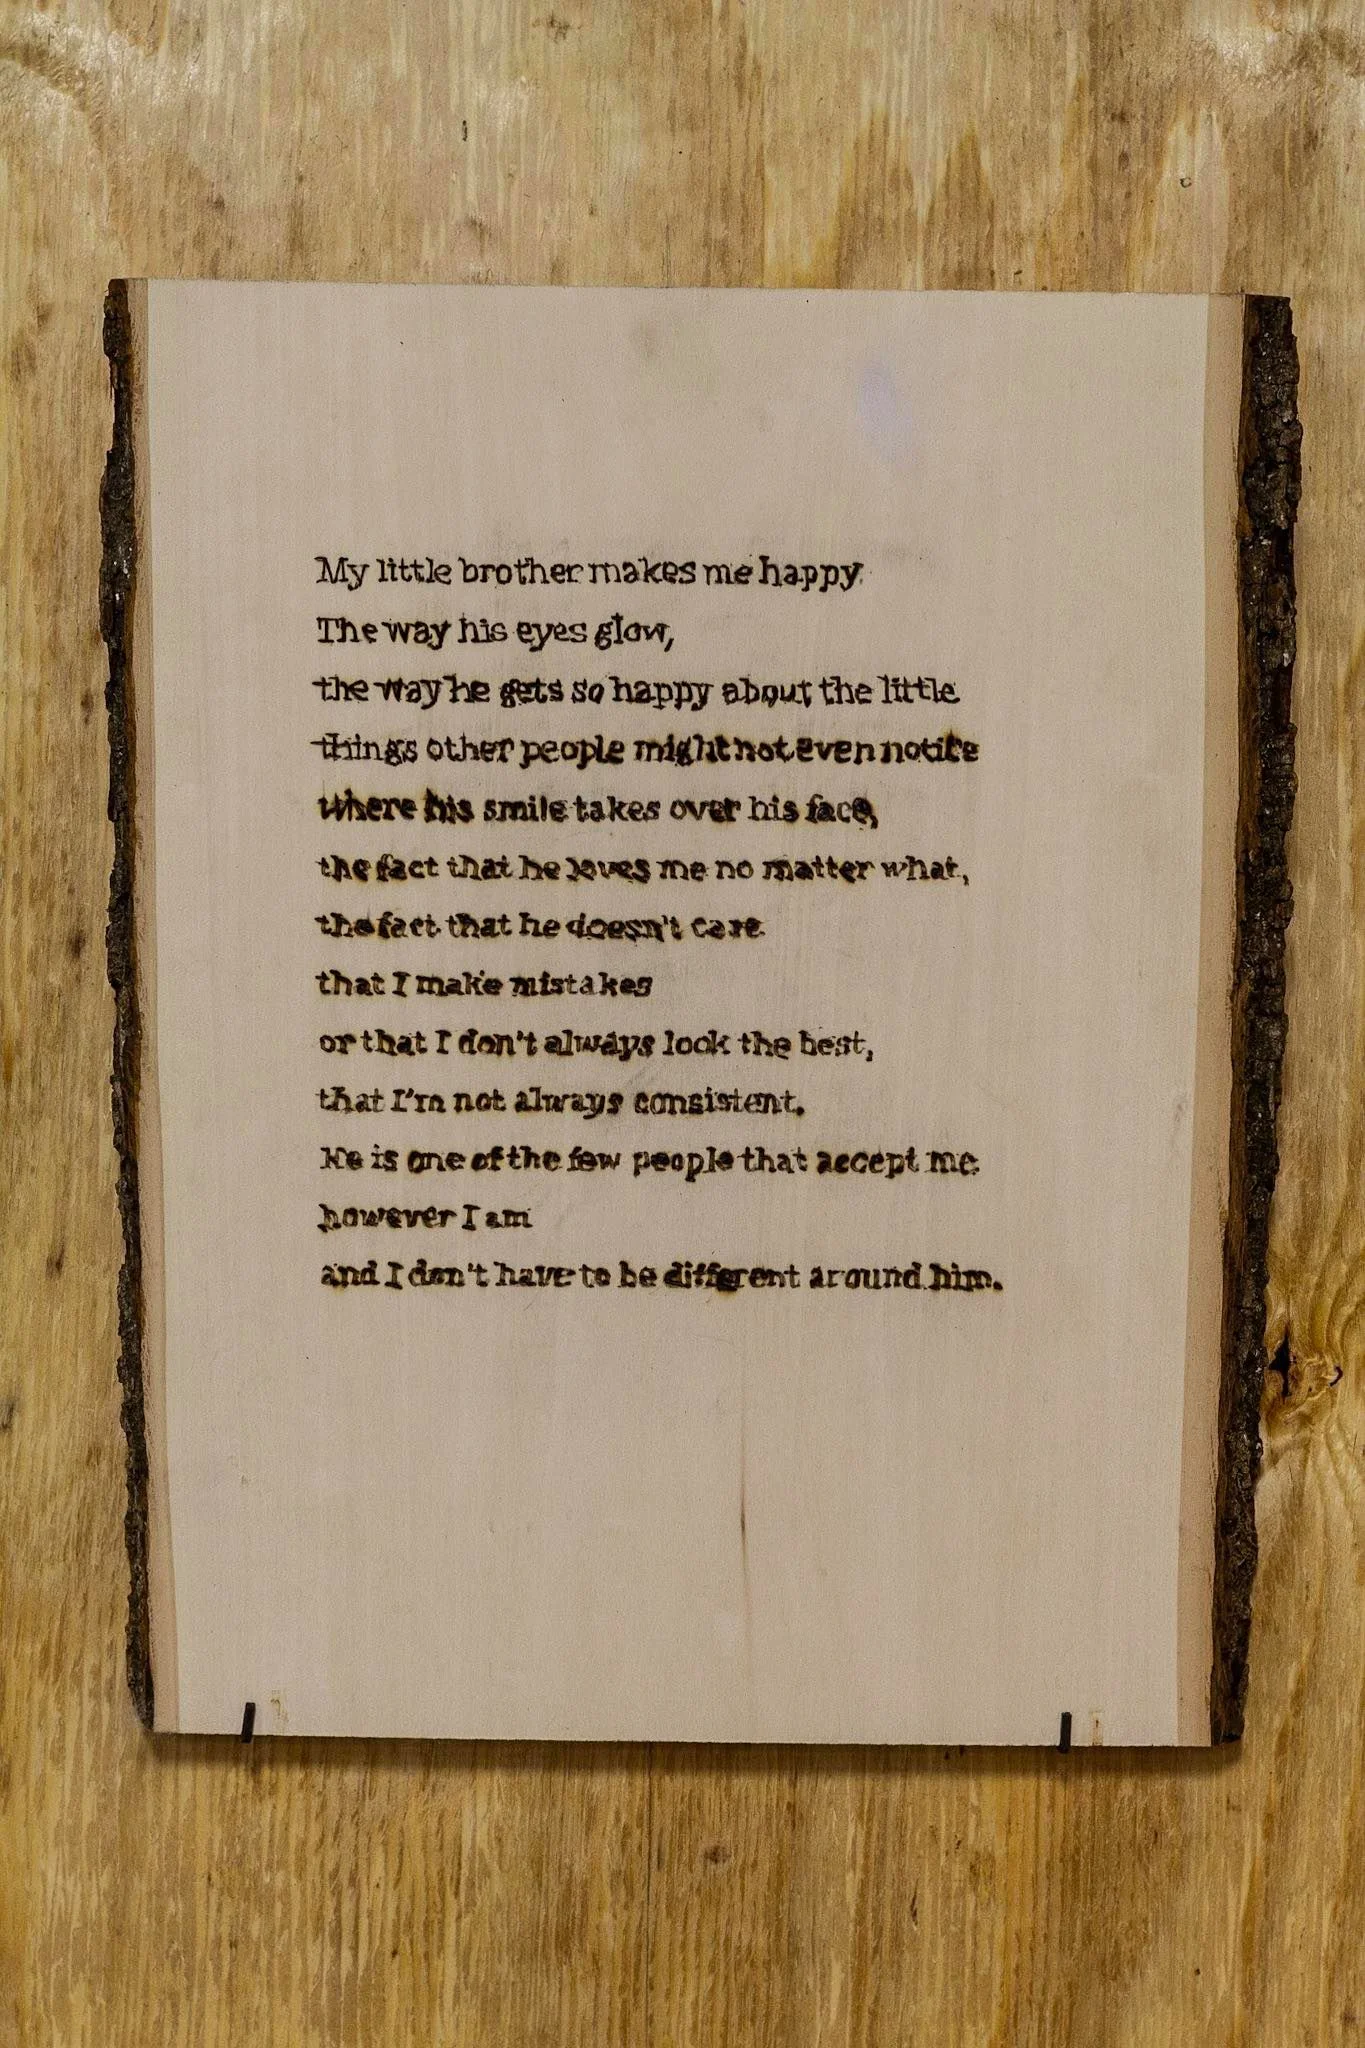 My little brother makes me happy
The way his eyes glow,
the way he gets so happy about the little
things other people might not even notice
where his smile takes over his face,
the fact that he loves me no matter what,
the fact that he doesn't care
that I make mistakes
or that I don't always look the best,
that I'm not always consistent.
He is one of the few people that accept me
however I am
and I don't have to be different around him.